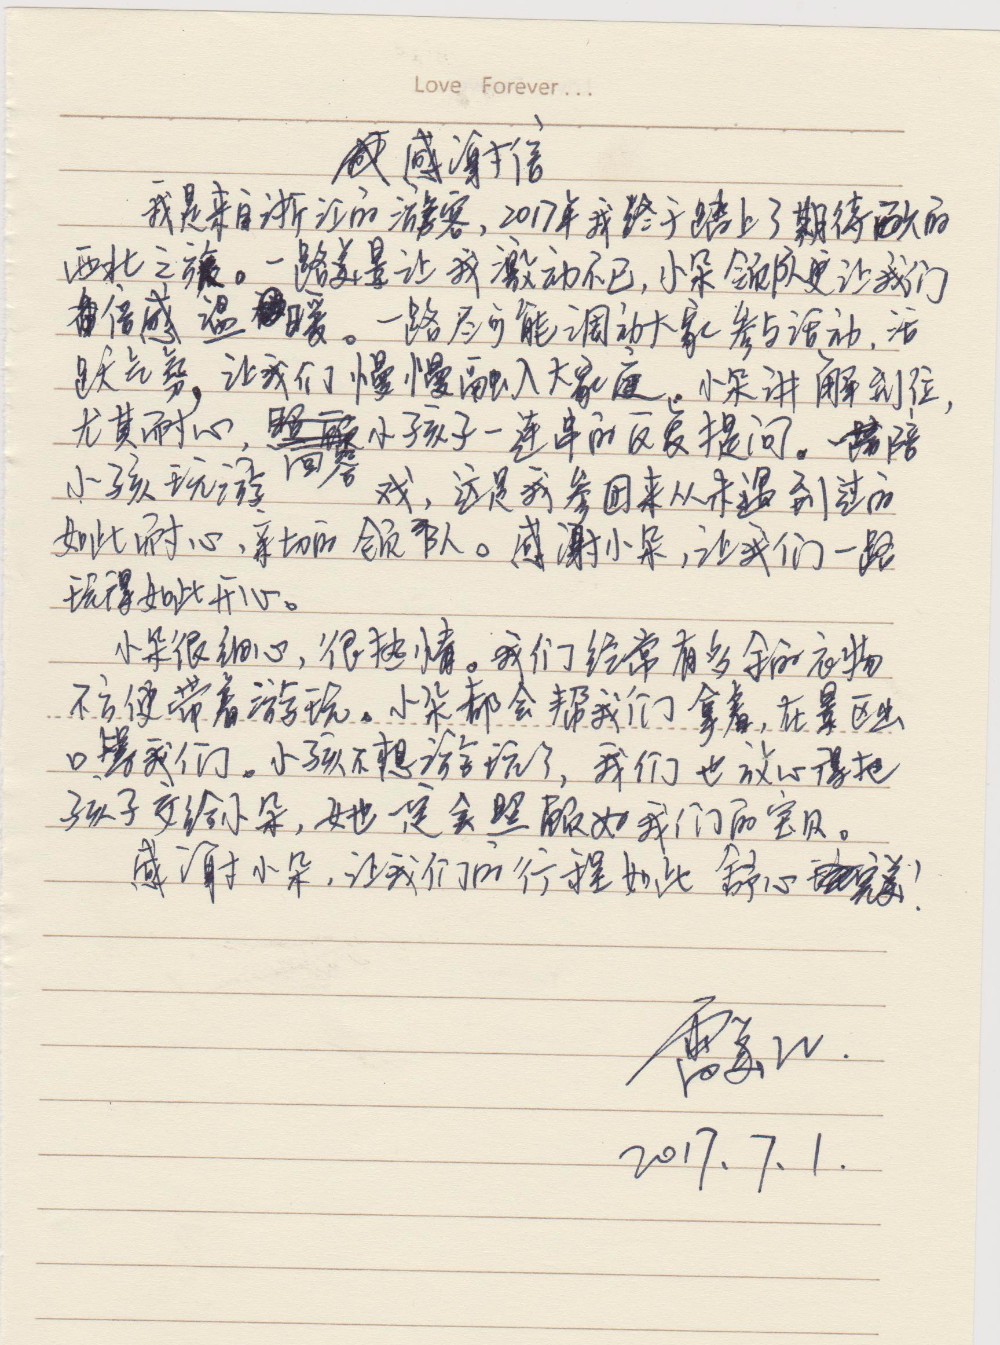 Love Forever...
感谢信
我是来自浙江的游客,2017年我终于踏上了期待已久的
西北之旅。一路美景让我激动不已,小朵领队更让我们
倍感温暖。一路尽可能调动大家参与活动,活
跃气势,让我们慢慢融入大家庭。小朵讲解到位,
尤其耐心,小孩子一连串的反复提问。陪
回答
小孩玩游戏,这是我参团来从未遇到过的
如此耐心,亲切的领队。感谢小朵,让我们一路
玩得如此开心。
小朵很细心,很热情。我们经常有多余的衣物
不方便带着游玩。小朵都会帮我们拿着,在景区出
口等我们。小孩不想游玩了,我们也放心得把
孩子交给小朵,她一定会照顾好我们的宝贝。
感谢小朵,让我们的行程如此舒心完美!
2017.7.1.